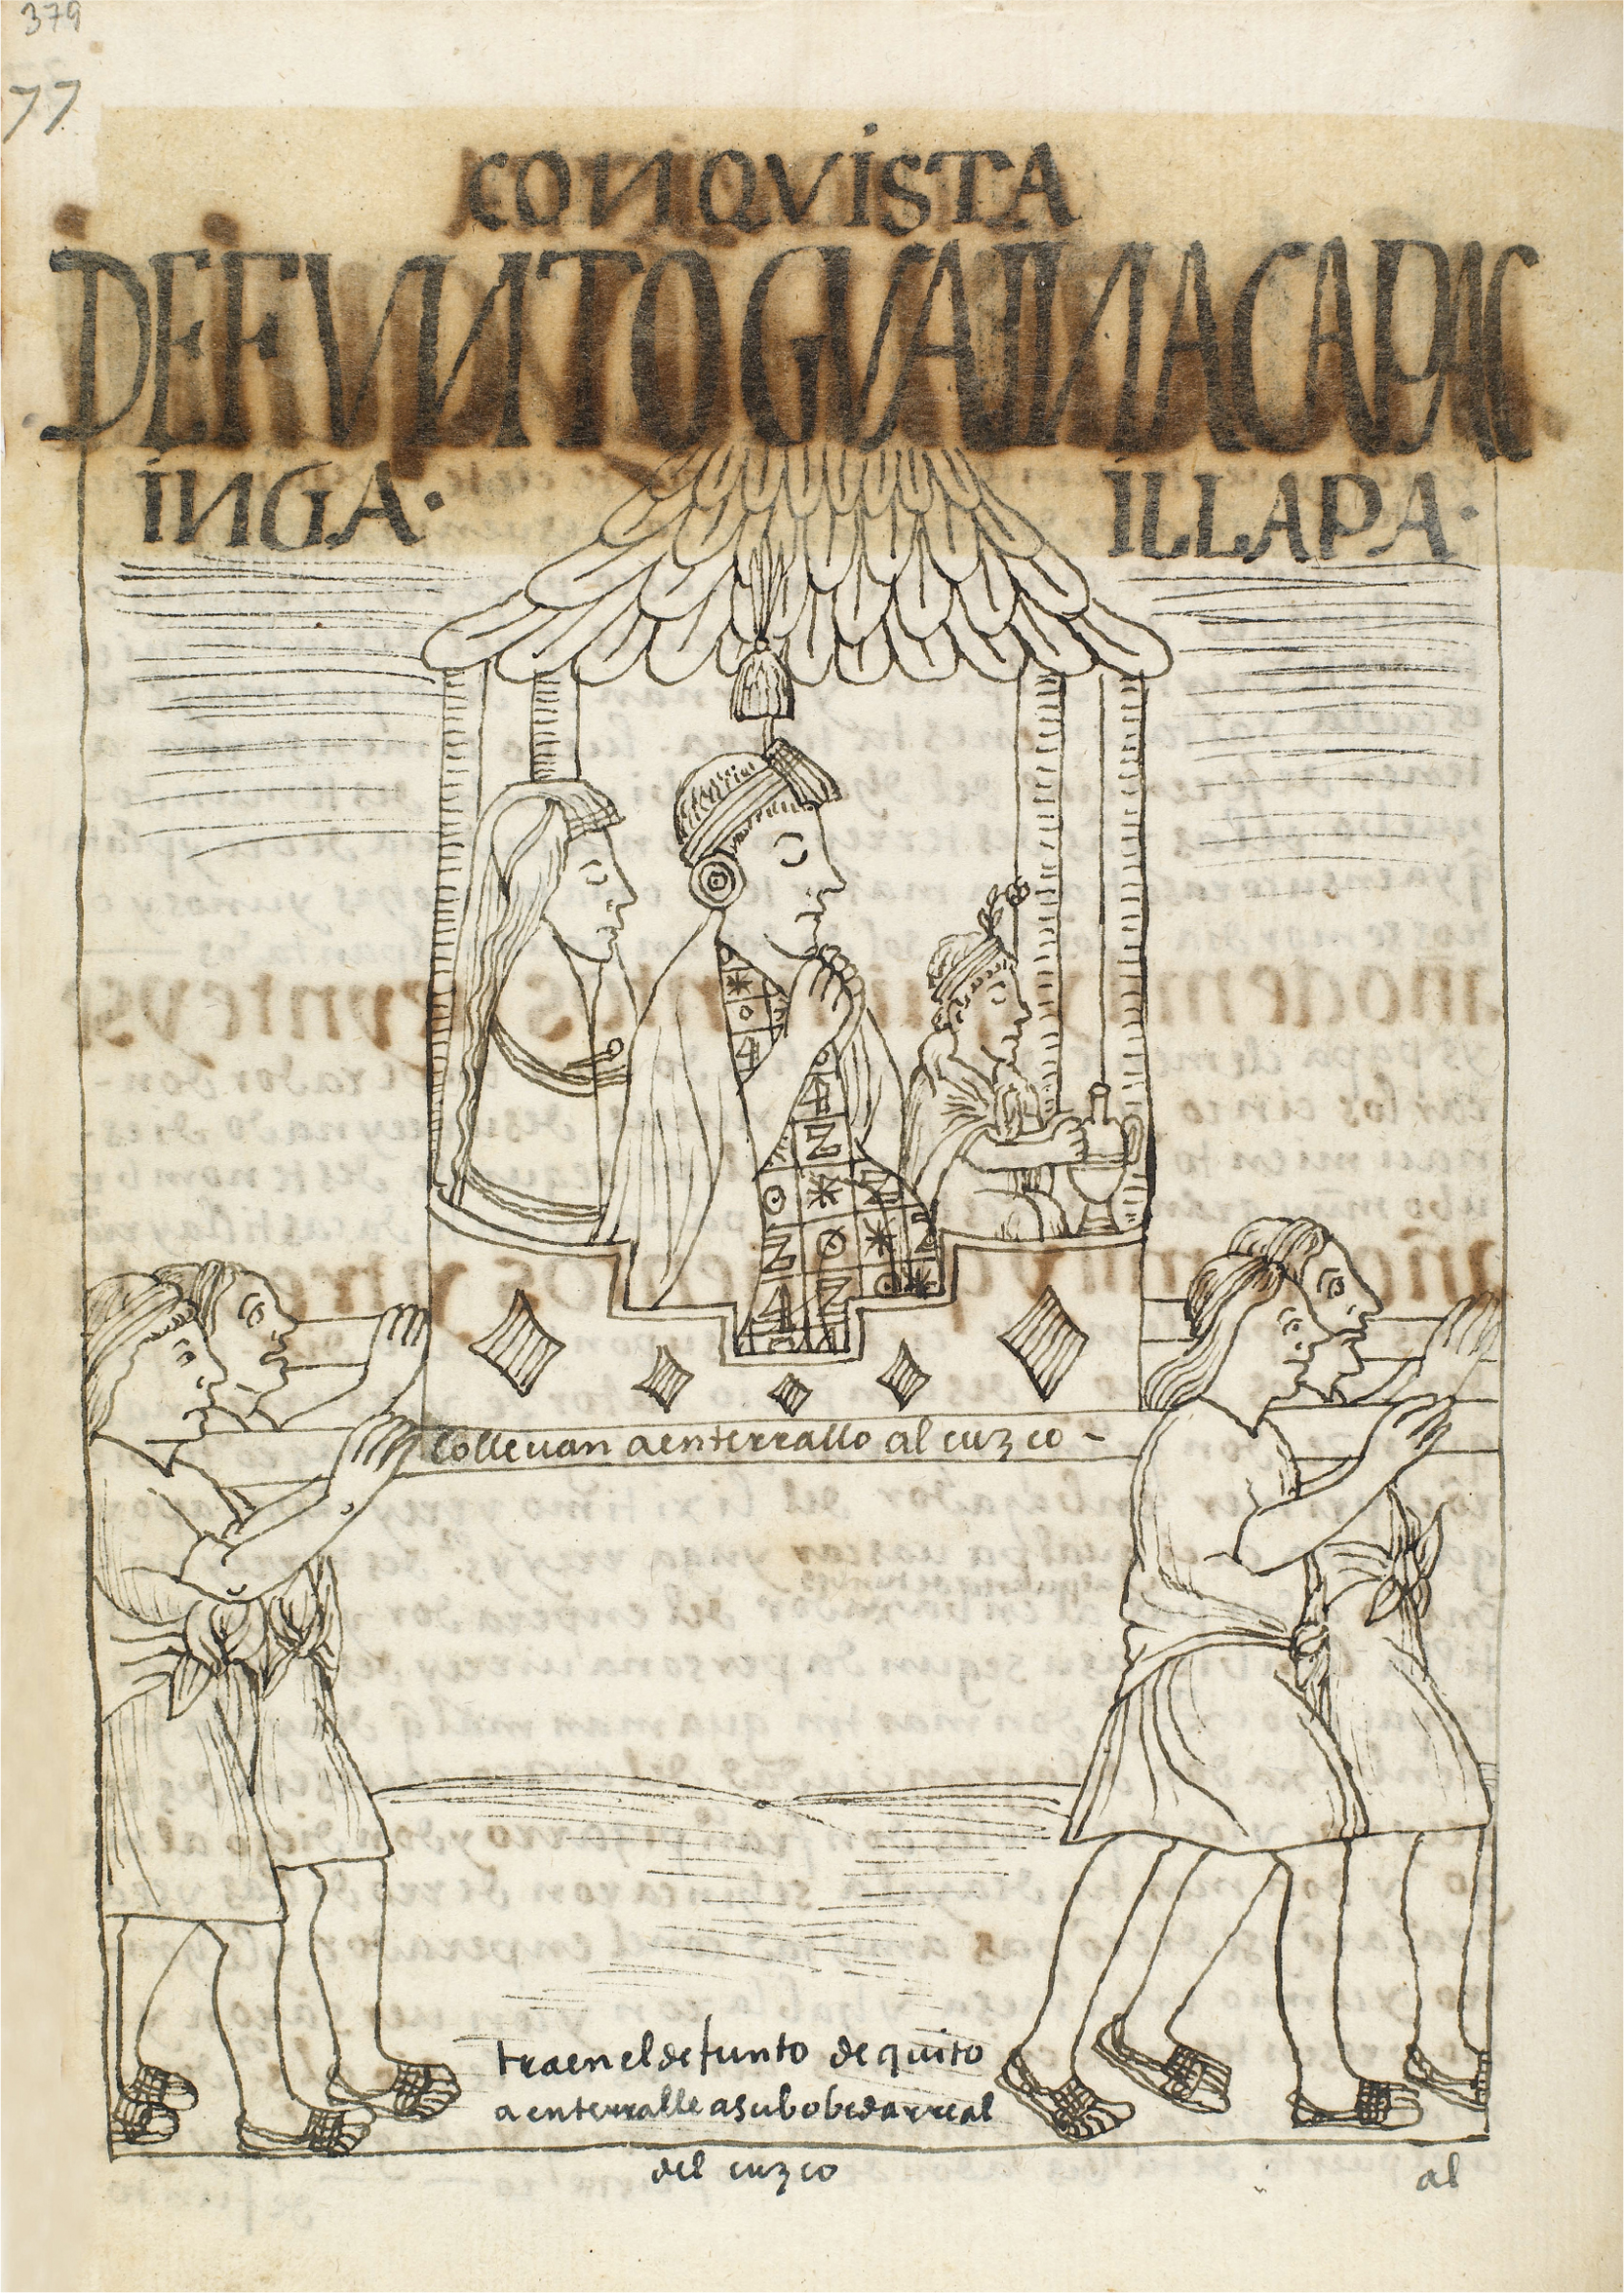 379
77
CONQVISTA
DEFVNTO GVAINACAPAC
INGA·
ILLAPA·
lolleuan aenterrallo al cuzco -
traen el defunto de quito
a enterralle a su bobeda rreal
del cuzco
al